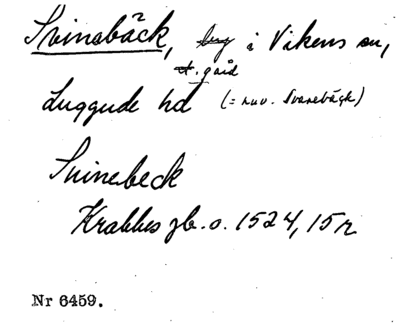 Svinabäck, by i Vikens sn,
f. gård
Luggude hd (= nuv. Svanebäck)
Svinebeck
Krabbes jb. o. 1524, 15 r
Nr 6459.